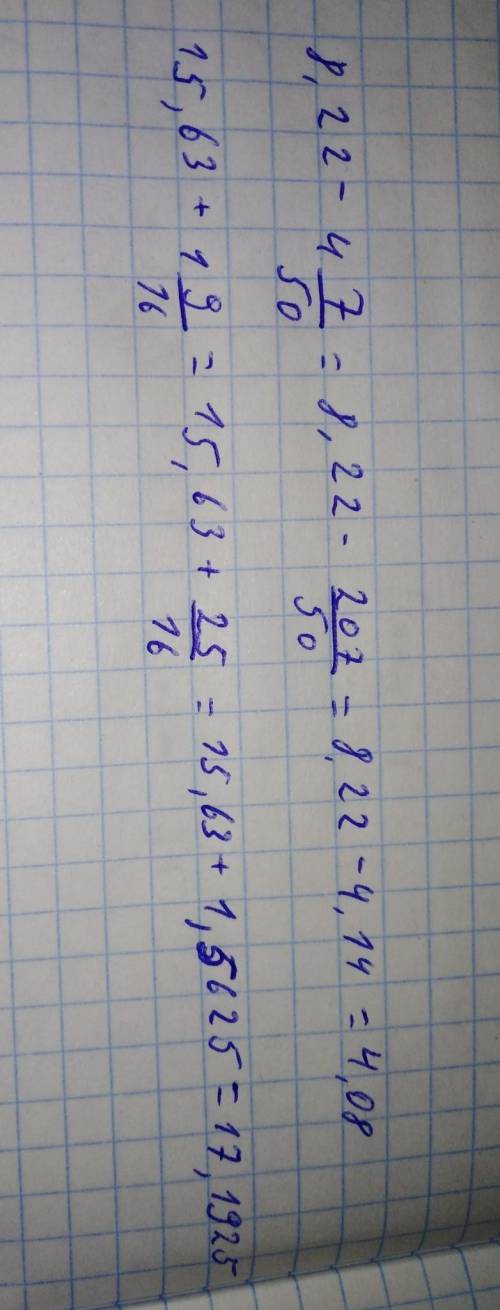 8,22 - 4 7/50 = 8,22 - 207/50 = 8,22 - 4,14 = 4,08
15,63 + 1 9/16 = 15,63 + 25/16 = 15,63 + 1,5625 = 17,1925